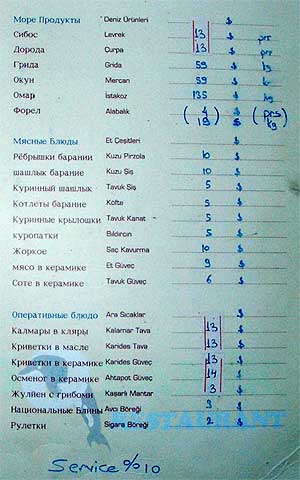 Море Продукты Deniz Ürünleri $
Сибос Levrek 13 $ prs
Дорода Çurpa 13 $ prs
Грида Grida 59 $ kg
Окун Mercan 59 $ kg
Омар Istakoz 135 $ kg
Форел Alabalık ( 4 $ ( prs )
( 19 ) $ kg )
Мясные Блюды Et Çeşitleri $
Рёбрышки барании Kuzu Pirzola 10 $
шашлык барание Kuzu Şiş 10 $
Куринный шашлык Tavuk Şiş 5 $
Котлеты барание Köfte 5 $
Куринные крылошки Tavuk Kanat 5 $
куропатки Bıldırcın 5 $
Жоркое Saç Kavurma 10 $
мясо в керамике Et Güveç 9 $
Соте в керамике Tavuk Güveç 6 $
Оперативные блюдо Ara Sıcaklar $
Калмары в кляры Kalamar Tava 13 $
Криветки в масле Karides Tava 13 $
Криветки в керамике Karides Güveç 13 $
Осменог в керамике Ahtapot Güveç 14 $
Жулйен с грибоми Kaşarlı Mantar 3 $
Национальные Блины Avcı Böreği 3 $
Рулетки Sigara Böreği 2 $
Service %10